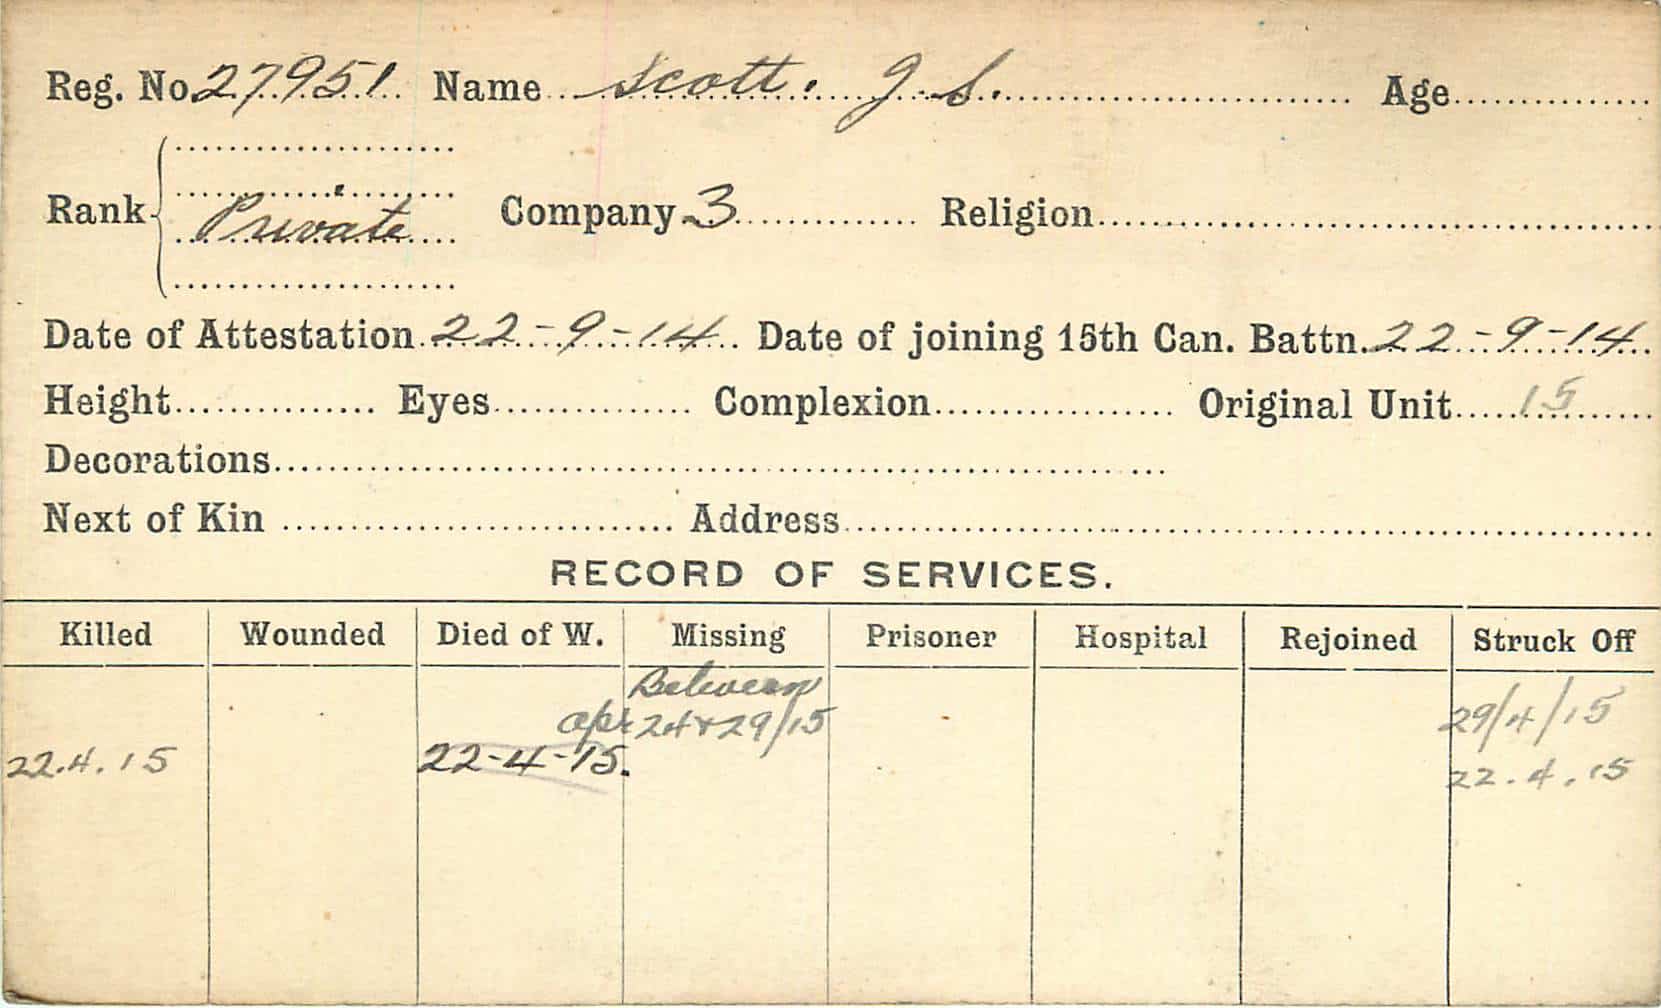 Reg. No. 27951 Name Scott. J. S. Age
Rank Private Company 3 Religion
Date of Attestation 22-9-14 Date of joining 15th Can. Battn. 22-9-14
Height Eyes Complexion Original Unit 15
Decorations
Next of Kin Address
RECORD OF SERVICES.
Killed Wounded Died of W. Missing Prisoner Hospital Rejoined Struck Off
Between
apr 24 & 29/15 29/4/15
22.4.15 22-4-15. 22.4.15